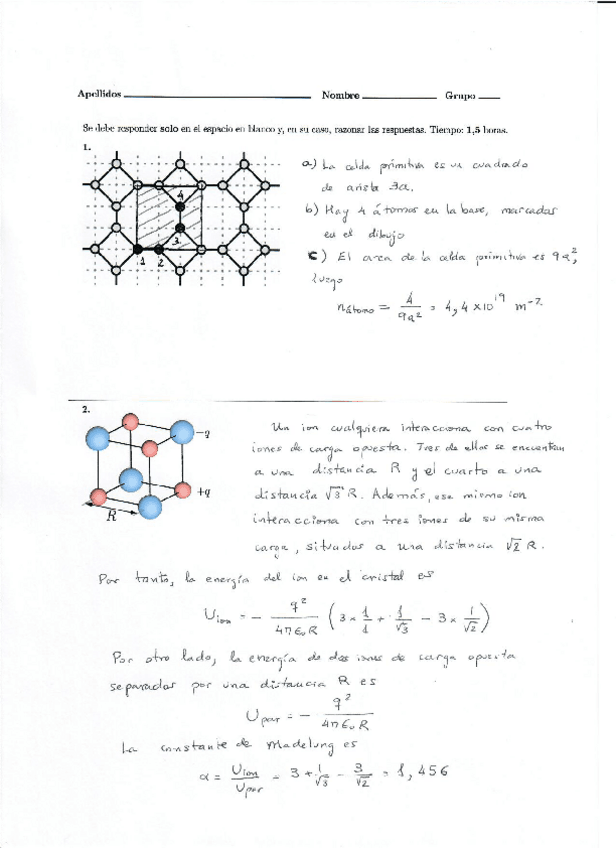 Apellidos Nombre Grupo
Se debe responder solo en el espacio en blanco y, en su caso, razonar las respuestas. Tiempo: 1,5 horas.
1.
a) La celda primitiva es un cuadrado
de arista 3a.
b) Hay 4 átomos en la base, marcados
en el dibujo
c) El area de la celda primitiva es 9a²,
luego
nátomo = 4/9a² = 4,4 × 10¹⁹ m⁻²
4
3
1 2
2.
-q
+q
R
Un ion cualquiera interacciona con cuatro
iones de carga opuesta. Tres de ellos se encuentran
a una distancia R y el cuarto a una
distancia √3 R. Además, ese mismo ion
interacciona con tres iones de su misma
carga, situados a una distancia √2 R.
Por tanto, la energía del ion en el cristal es
Uion = - q²/4πε₀R (3 × 1/1 + 1/√3 - 3 × 1/√2)
Por otro lado, la energía de dos iones de carga opuesta
separados por una distancia R es
Upar = - q²/4πε₀R
La constante de Madelung es
α = Uion/Upar = 3 + 1/√3 - 3/√2 = 1,456